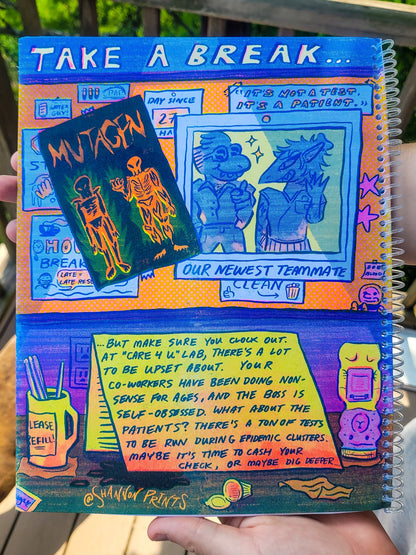 TAKE A BREAK...
LATER GUY!
DAY SINCE
27
HA
"IT'S NOT A TEST.
IT'S A PATIENT."
MUTAGEN
ST
HOU
BREAK
LATE =
LATE RES
OUR NEWEST TEAMMATE
CLEAN
...BUT MAKE SURE YOU CLOCK OUT.
AT "CARE 4 U" LAB, THERE'S A LOT
TO BE UPSET ABOUT. YOUR
CO-WORKERS HAVE BEEN DOING NON-
SENSE FOR AGES, AND THE BOSS IS
SELF-OBSESSED. WHAT ABOUT THE
PATIENTS? THERE'S A TON OF TESTS
TO BE RUN DURING EPIDEMIC CLUSTERS.
MAYBE IT'S TIME TO CASH YOUR
CHECK, OR MAYBE DIG DEEPER
LEASE
REFILL!
@SHANNON PRINTS